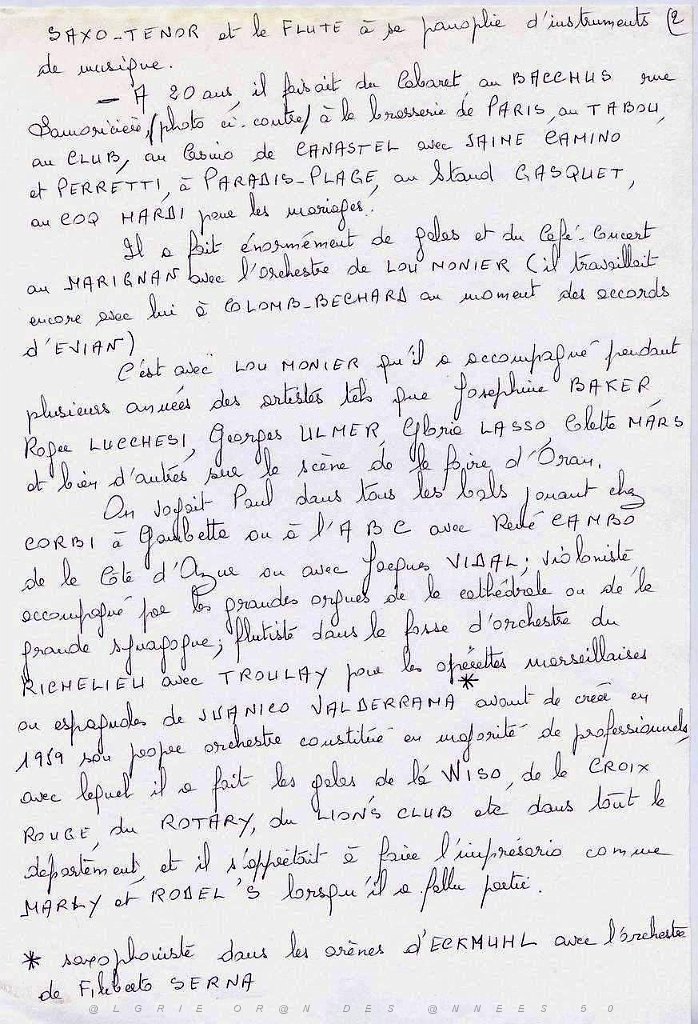 SAXO-TENOR et le FLUTE à sa panoplie d'instruments (2
de musique.
— A 20 ans, il faisait du Cabaret, au BACCHUS rue
Lamoricière, (photo ci-contre) à la brasserie de PARIS, au TABOU,
au CLUB, au Casino de CANASTEL avec JAIME CAMINO
et PERRETTI, à PARADIS-PLAGE, au Stand GASQUET,
au COQ HARDI pour les mariages.
Il a fait énormément de galas et du Café-Concert
au MARIGNAN avec l'orchestre de LOU MONIER (il travaillait
encore avec lui à COLOMB-BECHARD au moment des accords
d'EVIAN)
C'est avec LOU MONIER qu'il a accompagné pendant
plusieurs années des artistes tels que Joséphine BAKER
Roger LUCCHESI, Georges ULMER, Gloria LASSO Colette MARS
et bien d'autres sur la scène de la foire d'Oran.
On voyait Paul dans tous les bals jouant chez
CORBI à Gambetta ou à l'ABC avec René CAMBO
de la Côte d'Azur ou avec Jacques VIDAL; violoniste
accompagné par les grandes orgues de la cathédrale ou de la
grande synagogue; flutiste dans la fosse d'orchestre du
RICHELIEU avec TROULAY pour les opérettes marseillaises
ou espagnoles de JUANICO VALDERRAMA * avant de créer en
1959 son propre orchestre constitué en majorité de professionnels,
avec lequel il a fait les galas de la WISO, de la CROIX
ROUGE, du ROTARY, du LION'S CLUB etc dans tout le
département, et il s'apprêtait à faire l'imprésario comme
MARLY et RODEL'S lorsqu'il a fallu partir.
* saxophoniste dans les arènes d'ECKMUHL avec l'orchestre
de Filiberto SERNA
@LGRIE OR@N DES @NNEES 50